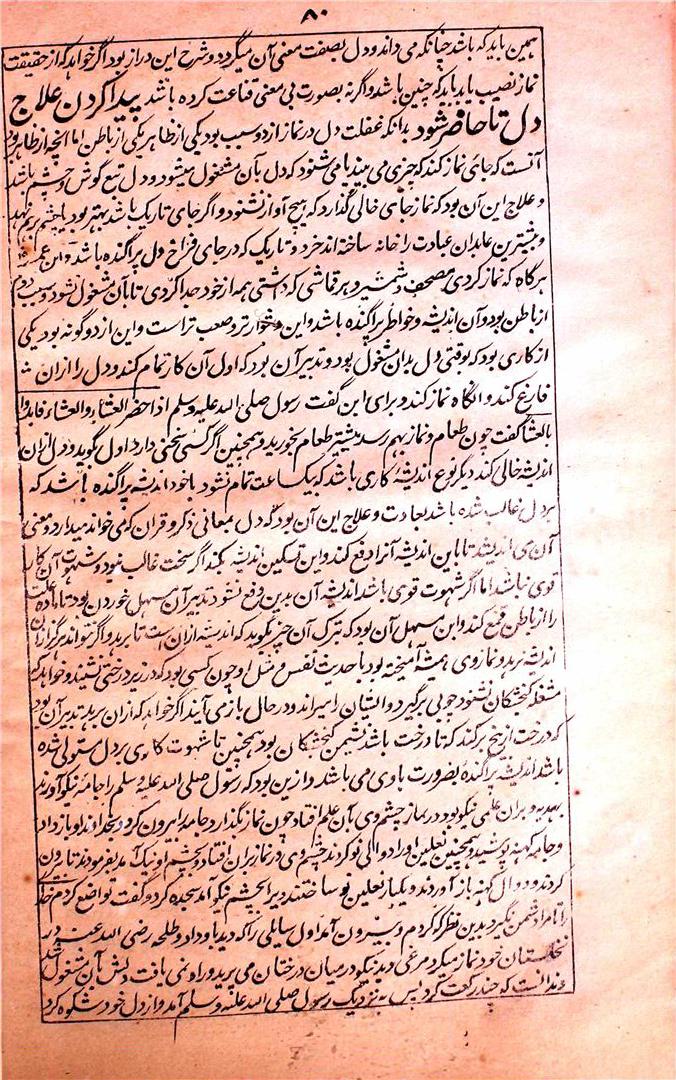 ۸۰
همین باید که باشد چنانکه می داند و دل بصفت معنی آن میگردد و شرح این دراز بود اگر خواهد که از حقیقت
نماز نصیب یابد باید که چنین باشد و اگر نه بصورت بی معنی قناعت کرده باشد پیدا کردن علاج
دل تا حاضر شود بدانکه غفلت دل در نماز از دو سبب بود یکی از ظاهر یکی از باطن اما انچه از ظاهر بود
آنست که جای نماز کند که چیزی می بیند یا می شنود که دل بآن مشغول میشود و دل تبع گوش و چشم باشد
و علاج این آن بود که نماز جای خالی گذارد که هیچ آواز نشنود و اگر جای تاریک باشد بهتر بود یا چشم برهم نهد
و بیشترین عابدان عبادت را خانه ساخته اند خرد و تاریک که در جای فراخ دل پراگنده باشد و ابن عمر
هرگاه که نماز کردی مصحف و شمشیر و هر قماشی که داشتی همه از خود جدا کردی تا بآن مشغول نشود و سبب دوم
از باطن بود و آن اندیشه و خواطر پراگنده باشد و این دشوارتر و صعب تر است و این از دو گونه بود یکی
از کاری بود که بوقتی دل بدان مشغول بود و تدبیر آن بود که اول آن کار تمام کند و دل را از ان
فارغ کند و انگاه نماز کند و برای این گفت رسول صلی الله علیه وسلم اذا حضر العشاء و العشاء فابدؤا
بالعشا گفت چون طعام و نماز بهم رسد بیشتر طعام بخورید و همچنین اگر کسی سخنی دارد اول گوید و دل از ان
اندیشه خالی کند دیگر نوع اندیشه کاری باشد که بیکساعت تمام نشود یا خود اندیشه پراگنده باشد که
بر دل غالب شده باشد بعادت و علاج این آن بود که دل بمعانی ذکر و قران که می خواند میدارد و معنی
آن می اندیشد تا باین اندیشه آنرا دفع کند و این تسکین اندیشه بکند اگر سخت غالب نبود و شهوت آن کار
قوی نباشد اما اگر شهوت قوی باشد اندیشه آن بدین دفع نشود تدبیر آن مسهل خوردن بود تا ماده علت
را از باطن قمع کند و این مسهل آن بود که بترک آن چیز بگوید که اندیشه ازان است تا برهد و اگر نتواند هرگز ازان
اندیشه نرهد و نماز وی همیشه آمیخته بود با حدیث نفس و مثل او چون کسی بود که در زیر درختی نشیند و خواهد که
مشغله گنجشکان نشنود چوبی برگیرد و ایشان را میراند و در حال باز می آیند اگر خواهد که ازان برهد تدبیر آن بود
که درخت از بیخ برکند که تا درخت باشد نشیمن گنجشکان بود همچنین تا شهوت کاری بر دل مستولی شده
باشد اندیشه پراگنده بضرورت با وی می باشد و ازین بود که رسول صلی الله علیه وسلم را جامه نیکو آوردند
بهدیه و بران علمی نیکو بود در نماز چشم وی بآن علم افتاد چون نماز گذارد جامه بیرون کرد و بخداوند او باز داد
و جامه کهنه پوشید و همچنین نعلین او را دوالی نو کردند چشم وی در نماز بران افتاد و بچشم او نیک آمد بفرمود تا بیرون
کردند و دوال کهنه باز آوردند و یکبار نعلین نو ساختند ویرا بچشم نیکو آمد سجده کرد و گفت تواضع کردم خدا
را تا مرا دشمن نگیرد بدین نظر که کردم و بیرون آمد اول سایلی را که دید باو داد و طلحه رضی الله عنه در
نخلستان خود نماز میکرد مرغی دید نیکو در میان درختان می پرید و راه نمی یافت دلش بآن مشغول شد
و ندانست که چند رکعت کرد پس به نزدیک رسول صلی الله علیه وسلم آمد و از دل خود شکوه کرد